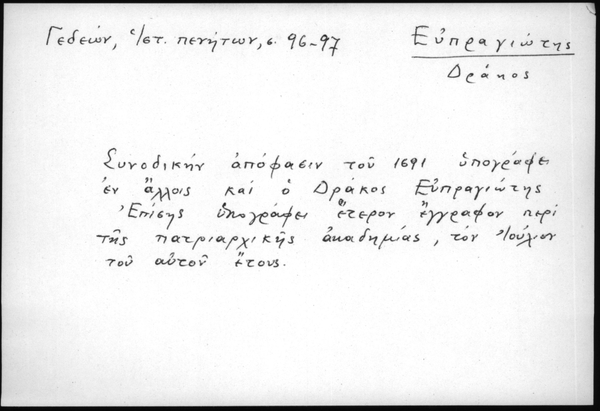 Γεδεών, Ἱστ. πενήτων, σ. 96-97
Εὐπραγιώτης
Δράκος
Συνοδικήν ἀπόφασιν τοῦ 1691 ὑπογράφει
ἐν ἄλλοις καί ὁ Δράκος Εὐπραγιώτης
Ἐπίσης ὑπογράφει ἕτερον ἔγγραφον περί
τῆς πατριαρχικῆς ἀκαδημίας, τόν Ἰούλιον
τοῦ αὐτοῦ ἔτους.